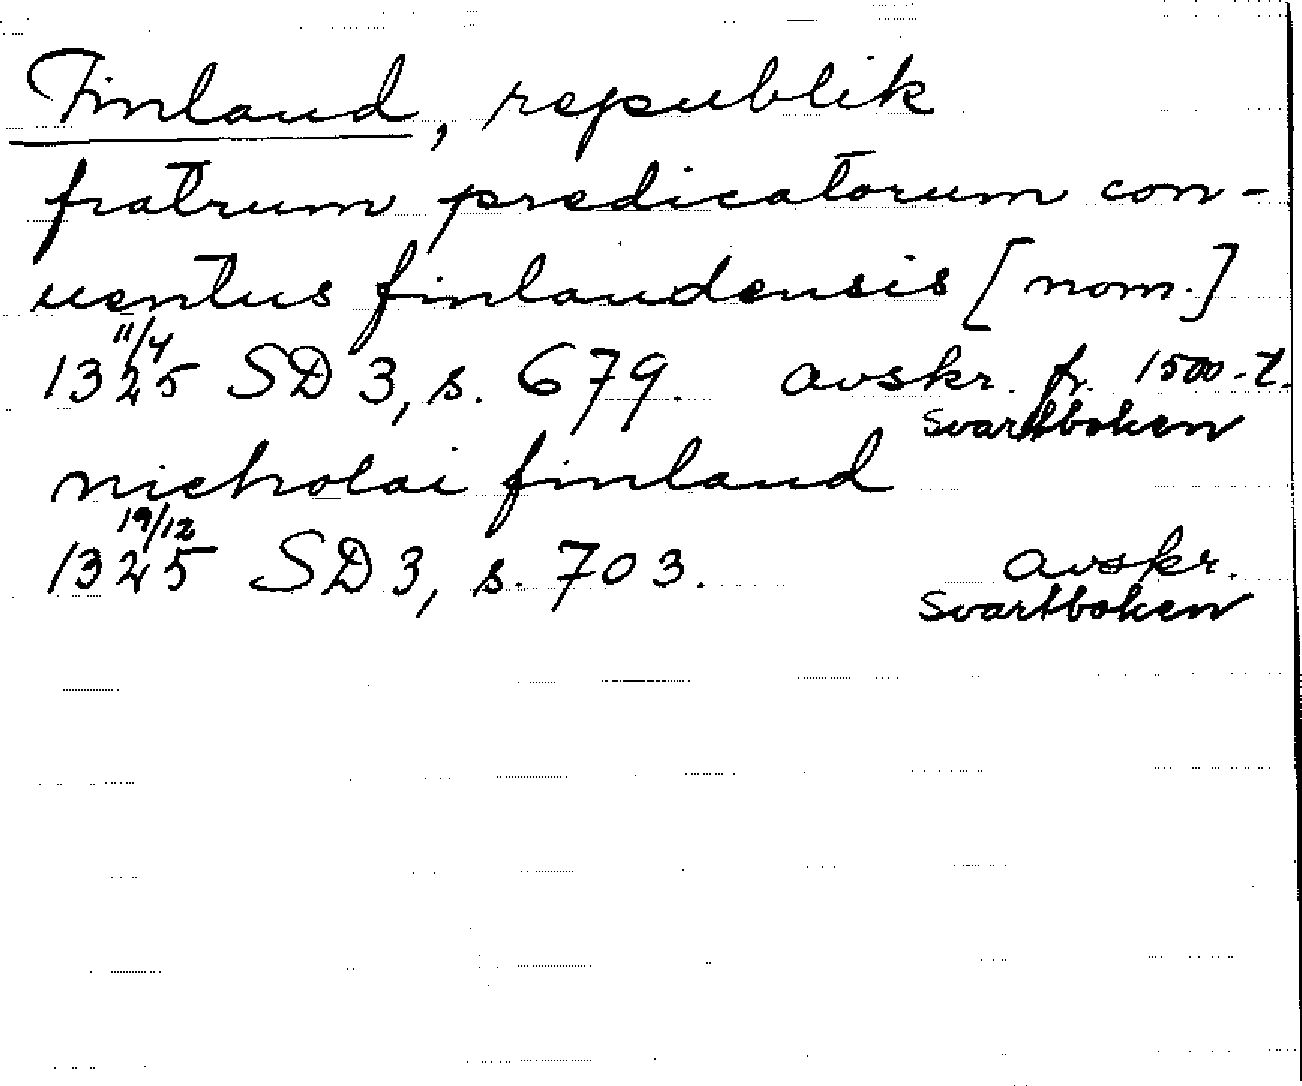 Finland, republik
fratrum predicatorum con-
uentus finlandensis [nom.]
1325 11/4 SD 3, s. 679. avskr. fr. 1500-t.
Svartboken
nicholai finland
1325 19/12 SD 3, s. 703. avskr.
Svartboken